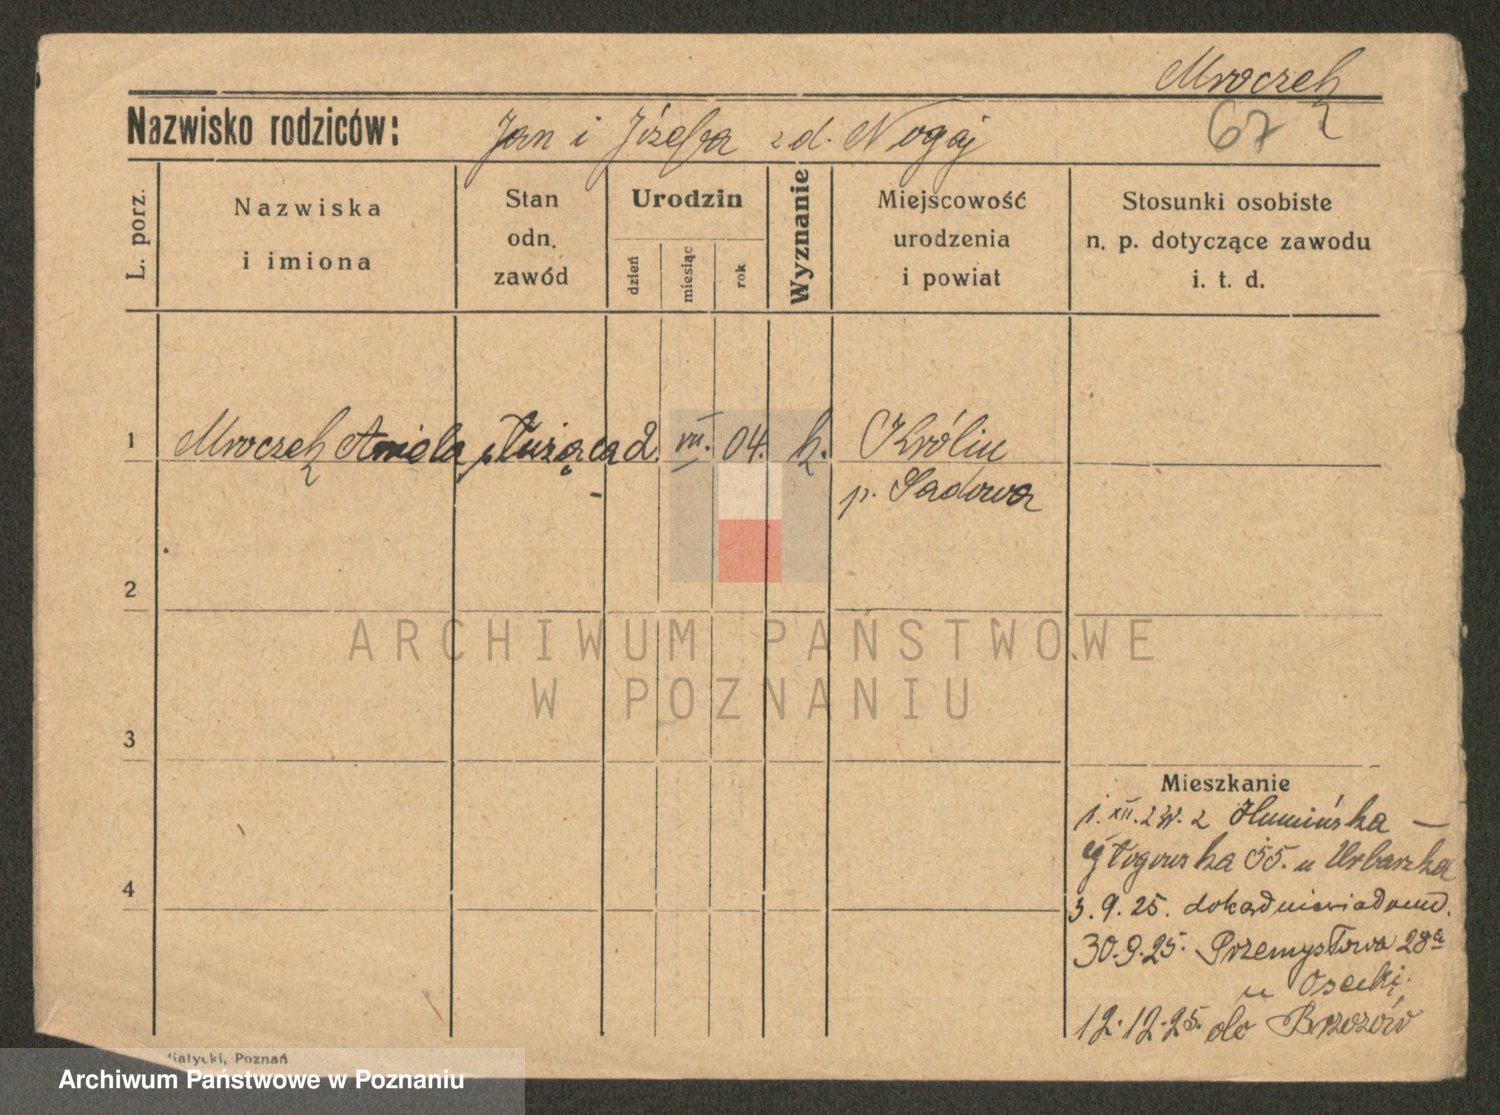 Mroczek
67
Nazwisko rodziców: Jan i Józefa zd. Nogaj
L. porz.
Nazwiska
i imiona
Stan
odn.
zawód
Urodzin
dzień
miesiąc
rok
Wyznanie
Miejscowość
urodzenia
i powiat
Stosunki osobiste
n. p. dotyczące zawodu
i. t. d.
1 Mroczek Aniela służąca 2. VII. 04. k. Królin
p. Sadowa
2
ARCHIWUM PAŃSTWOWE
W POZNANIU
3
Mieszkanie
1. XII. 24. z Humińska —
Głogowska 55. u Urbarska
4
3. 9. 25. dokąd niewiadomo.
30. 9. 25. Przemysłowa 28a
u Osecki.
12. 12. 25. do Brzozów
iałycki, Poznań
Archiwum Państwowe w Poznaniu